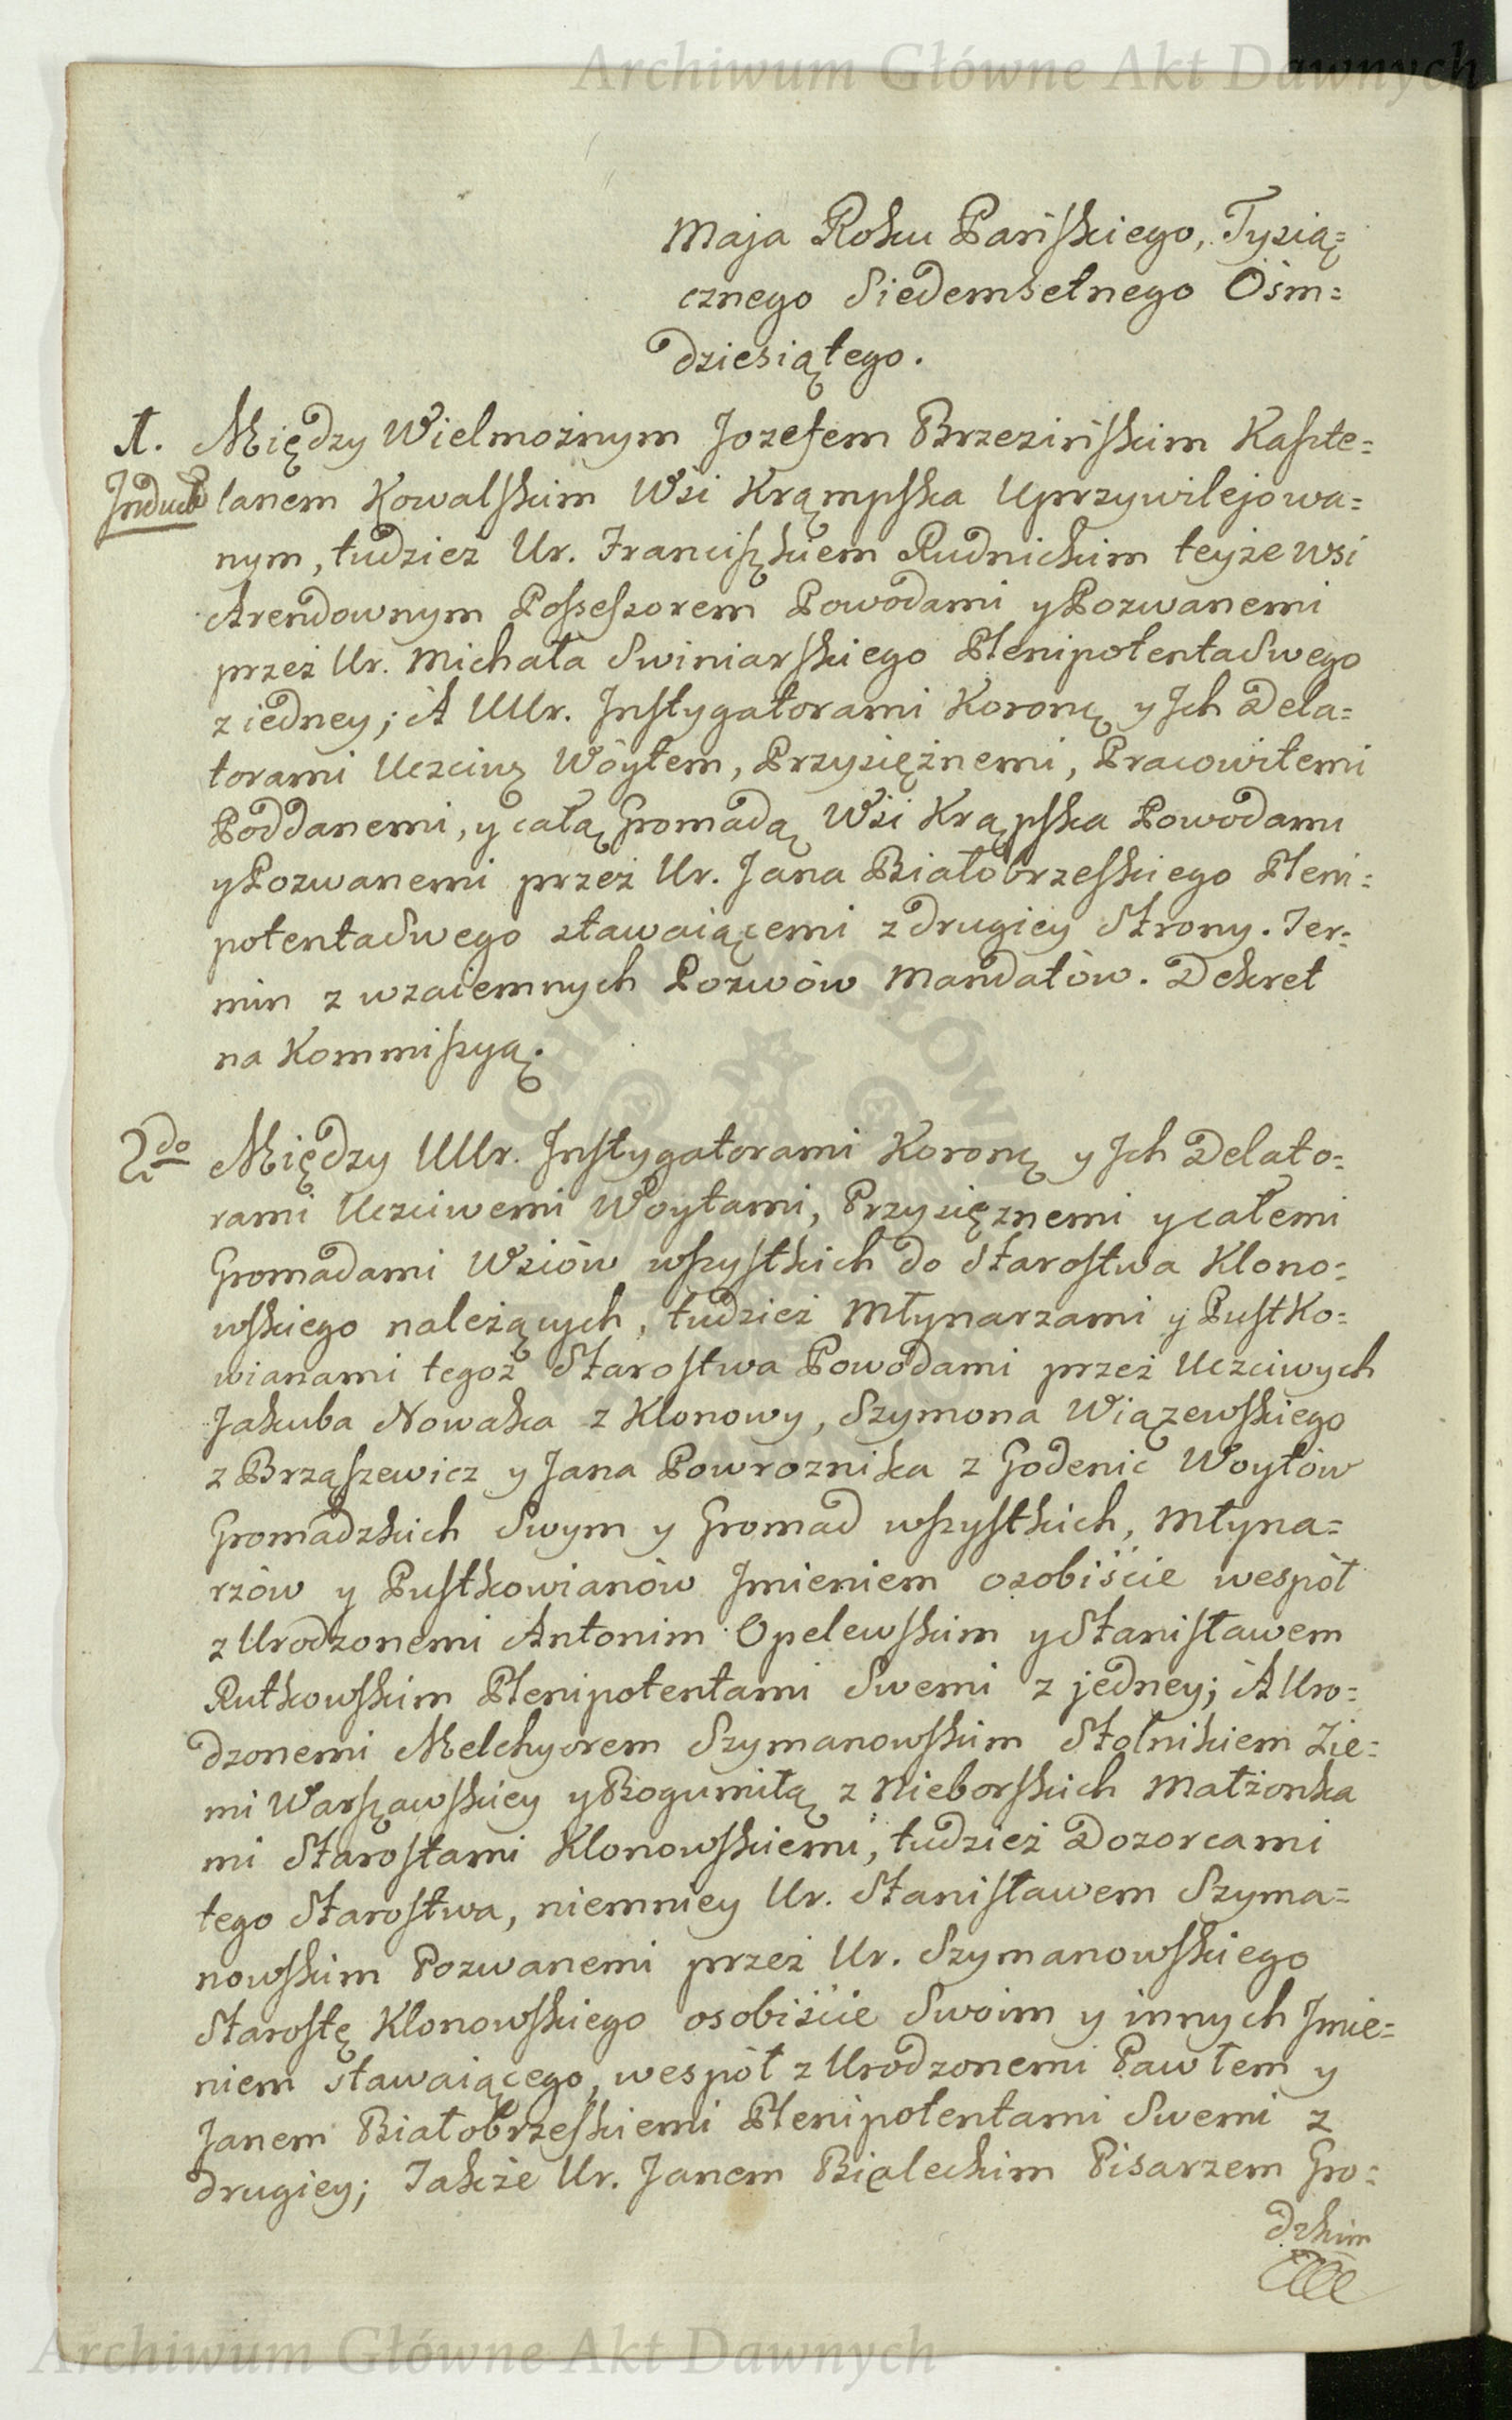 Archiwum Główne Akt Dawnych
Maja Roku Pańskiego, Tysią=
cznego Siedemsetnego Ośm=
dziesiątego.
1. Między Wielmożnym Jozefem Brzezińskim Kaszte=
Induct lanem Kowalskim Wsi Krąmpska Uprzywilejowa=
nym, tudziez Ur. Franciszkiem Rudnickim teyże wsi
Arendownym Possessorem Powodami y Pozwanemi
przez Ur. Michała Swiniarskiego Plenipotenta Swego
z iedney; A UUr. Instygatorami Koronę y Ich Dela=
torami Uczciwę Wóytem, Przysiężnemi, Pracowitemi
Poddanemi, y całą Gromadą Wsi Krąpska Powodami
y Pozwanemi przez Ur. Jana Białobrzeskiego Pleni=
potenta Swego stawaiącemi z drugiey Strony. Ter=
min z wzaiemnych Pozwów Mandatów. Dekret
na Kommissyą.
2do Między UUr. Instygatorami Koronę y Ich Delato=
rami Uczciwemi Woytami, Przysięznemi y całemi
Gromadami Wsiów wszystkich do Starostwa Klono=
wskiego należących, tudzież Młynarzami y PustKo=
wianami tegoż Starostwa Powodami przez Uczciwych
Jakuba Nowaka z Klonowy, Szymona Wiązewskiego
z Brząszewicz y Jana Powroznika z Godenic Woytów
Gromadzkich Swym y Gromad wszystkich, Młyna=
rzów y Pustkowianów Imieniem osobiście wespół
z Urodzonemi Antonim Opelewskim y Stanisławem
Rutkowskim Plenipotentami Swemi z jedney; A Uro=
dzonemi Melchyorem Szymanowskim Stolnikiem Zie=
mi Warszawskiey y Bogumiłą z Nieborskich Małżonka
mi Starostami Klonowskiemi, tudzież Dozorcami
tego Starostwa, niemniey Ur. Stanisławem Szyma=
nowskim Pozwanemi przez Ur. Szymanowskiego
Starostę Klonowskiego osobiście Swoim y innych Imie=
niem stawaiącego, wespół z Urodzonemi Pawłem y
Janem Białobrzeskiemi Plenipotentami Swemi z
drugiey; Także Ur. Janem Bialeckim Pisarzem Gro=
dzkim
Archiwum Główne Akt Dawnych